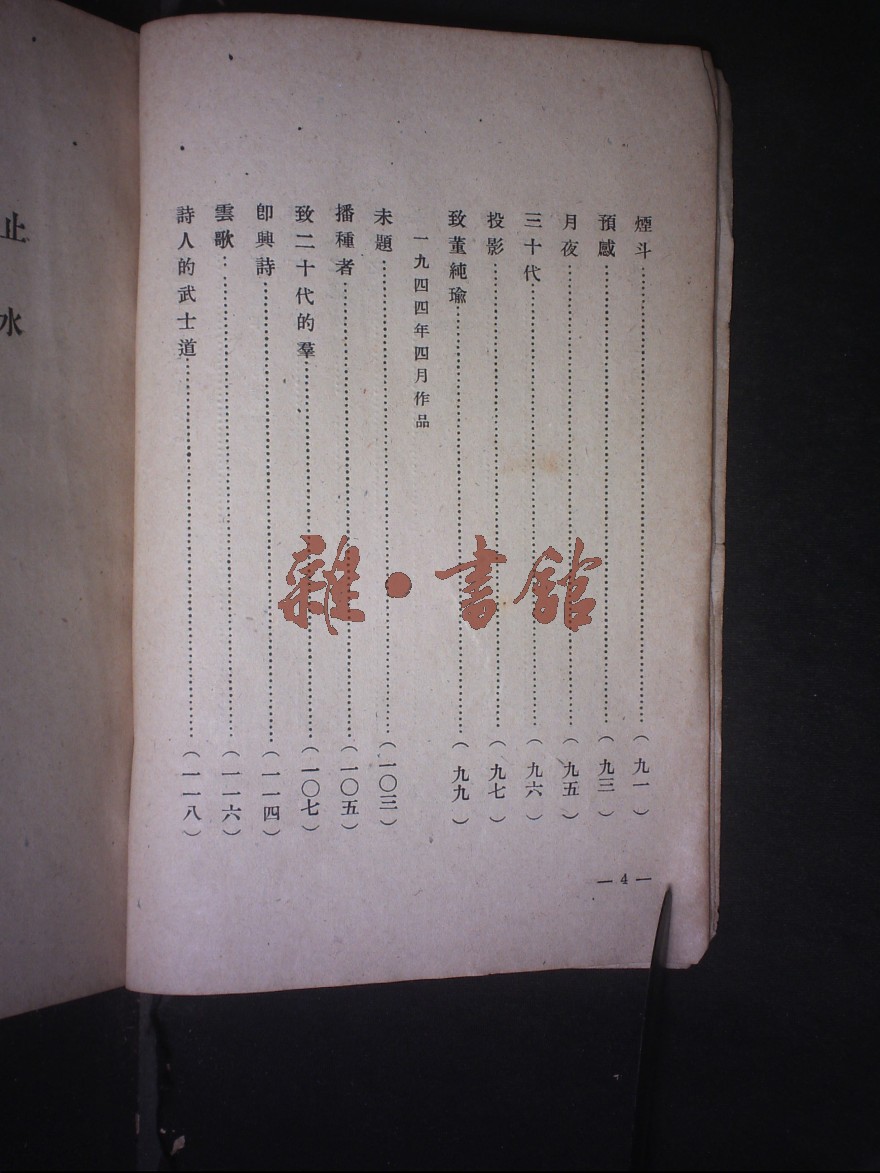 煙斗……（九一）
預感……（九三）
月夜……（九五）
三十代……（九六）
投影……（九七）
致董純瑜……（九九）
一九四四年四月作品
未題……（一〇三）
播種者……（一〇五）
致二十代的羣……（一〇七）
卽興詩……（一一四）
雲歌……（一一六）
詩人的武士道……（一一八）
— 4 —
止水
雜·書館